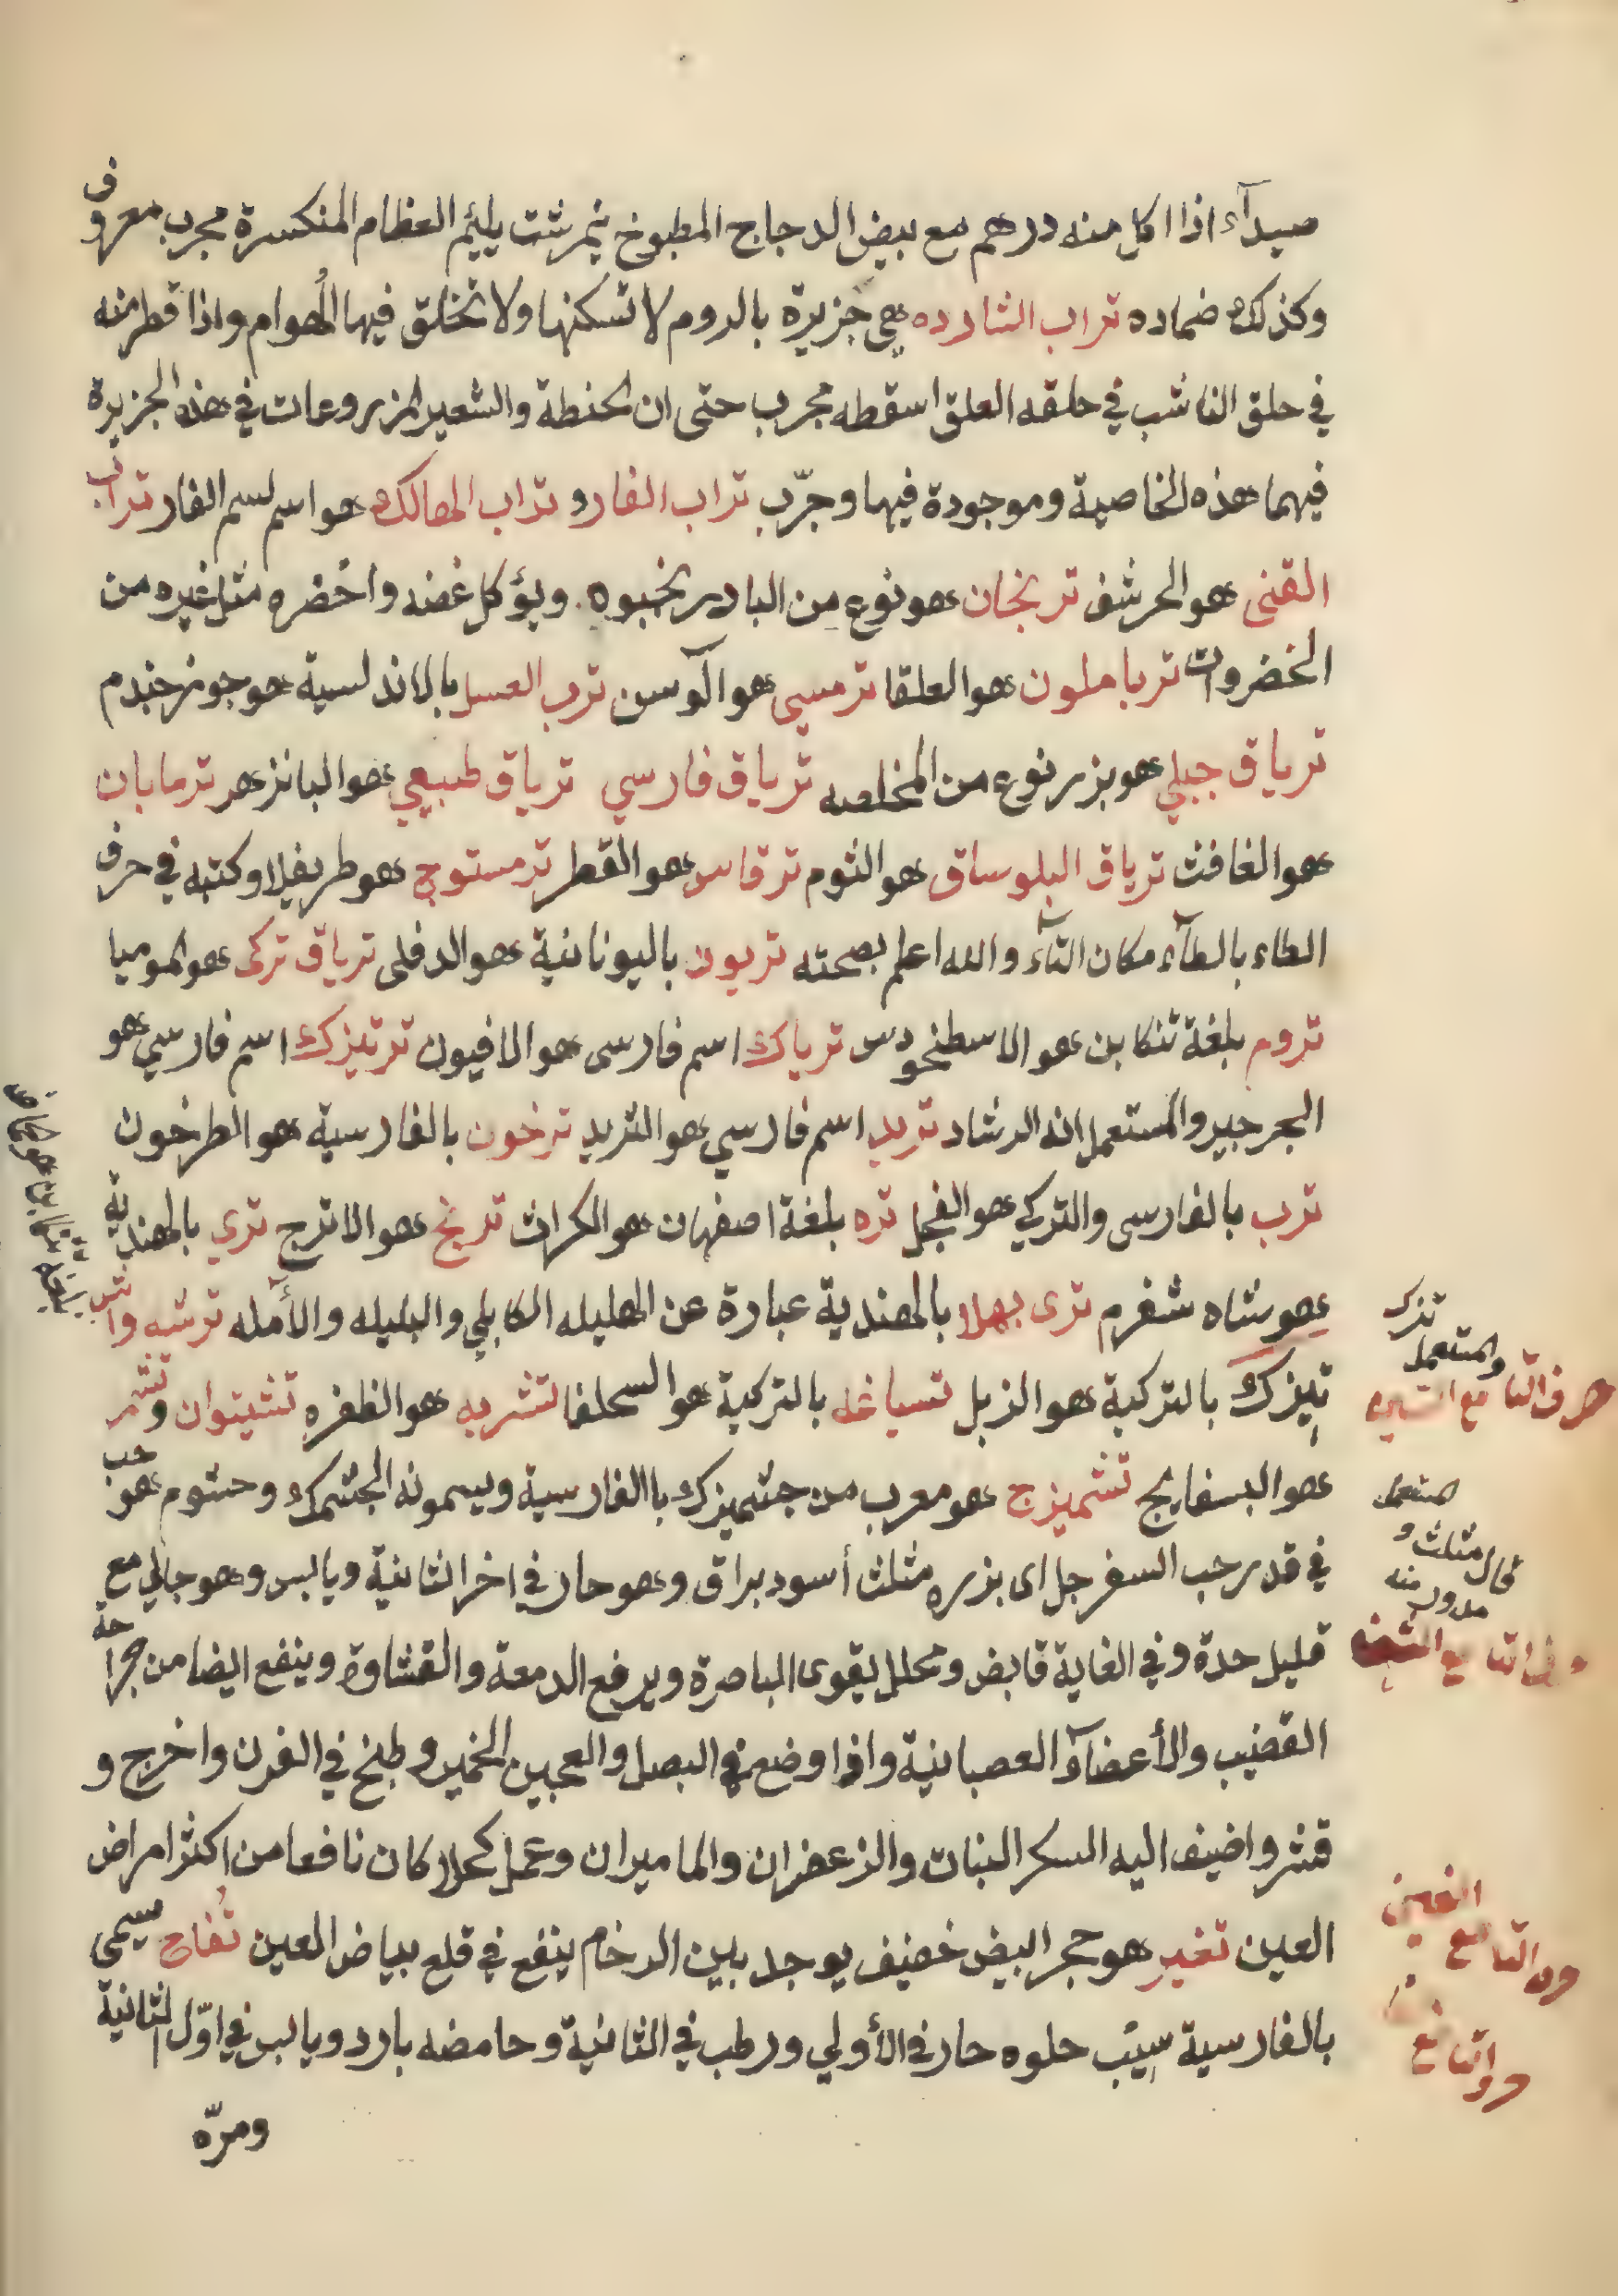 صيدآء اذا اكل منه درهم مع بيض الدجاج المطبوخ نيمرشت يليئم العظام المنكسرة مجرب معروف
وكذلك ضماده تراب الشارده هي جزيرة بالروم لا تسكنها ولا تخلق فيها الهوام واذا قطر منه
في حلق الناشب في حلقه العلق اسقطه مجرب حتى ان الحنطة والشعير المزروعات في هذه الجزيرة
فيهما هذه الخاصية وموجودة فيها وجرّب تراب الفار و تراب الهالك هو اسم لسم الفار تراب
القنى هو الحرشف ترنجان هو نوع من البادرنجبوه . ويؤكل غضه واخضره مثل غيره من
الخضروات ترباملون هو العلقا ترمسى هو آلوسن ترب العسل بالاندلسية هو جوزجندم
ترياق جبلي هو بزر نوع من المخلصه ترياق فارسي ترياق طبيعي هو البانزهر ترمابان
هو الغافث ترياق البلوساق هو الثوم ترقاس هو القطر ترمستوج هو طريفلا وكتبه في حرف
الطاء بالطآء مكان التآء والله اعلم بصحته تربون باليونانية هو الدفلى ترياق تركى هو الموميا
تروم بلغة تنكابن هو الاسطخودوس ترياك اسم فارسى هو الافيون ترتيزك اسم فارسي هو
الجرجير والمستعمل انه الرشاد تربد اسم فارسي هو التربد ترخون بالفارسية هو الطرخون
ترب بالفارسى والتركي هو الفجل تره بلغة اصفهان هو الكراث ترنج هو الاترج تري بالهندية
هو شاه شفرم ترى بهلا بالهندية عبارة عن الهليله الكابلي والبليله والأمله ترشه وا
تيزك بالتركية هو الزبل تسباغه بالتركية هو السحلفا تشربه هو الظفره تشيتوان وتشمر
هو البسفايج تشميزج هو معرب من چشميزك باالفارسية ويسمونه الچشمك وحشوم هو حب
في قدر حب السفرجل اى بزره مثلث أسود براق وهو حار في اخر الثانية ويابس وهو جالي مع
قليل حدة وفي الغاية قابض ومحلل يقوى الباصرة ويرفع الدمعة والقشاوة وينفع ايضا من جراحة
القضيب والأعضآء العصبانية واذا وضع في البصل والعجين الخمير وطبخ في الفرن واخرج و
قشر واضيف اليه السكر النبات والزعفران والماميران وعمل كحلا كان نافعا من اكثر امراض
العين تغير هو حجر ابيض خفيف يوجد بين الرخام ينفع في قلع بياض العين تُفاح سيمى
بالفارسية سيب حلوه حار في الأولي ورطب في الثانية وحامضه بارد ويابس في اوّل الثانية
ومرّه
تزك
والمستعمل
حرف التا مع السين
مستعمل
قال مثلث و
مدور منه
التا مع الشين
الغين
التا مع